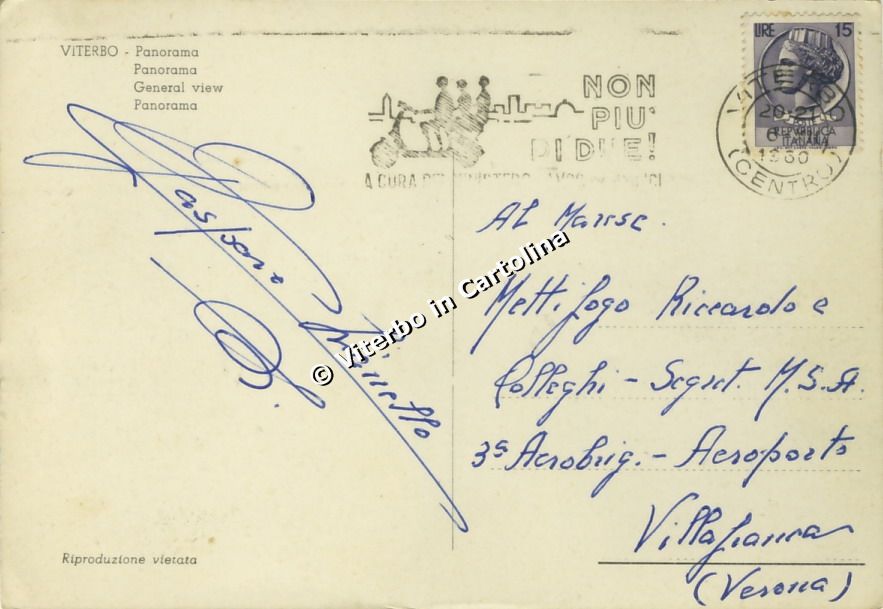 VITERBO - Panorama
Panorama
General view
Panorama
NON
PIU'
DI DUE!
A CURA DEL MINISTERO
LIRE 15
REPVBBLICA
ITALIANA
VITERBO
20-21
1960
(CENTRO)
Al
Mettifogo Riccardo e
Colleghi - Segret. M.S.A.
3ª Aerobrig. - Aeroporto
Villafranca
(Verona)
Gaspare
© Viterbo in Cartolina
Riproduzione vietata